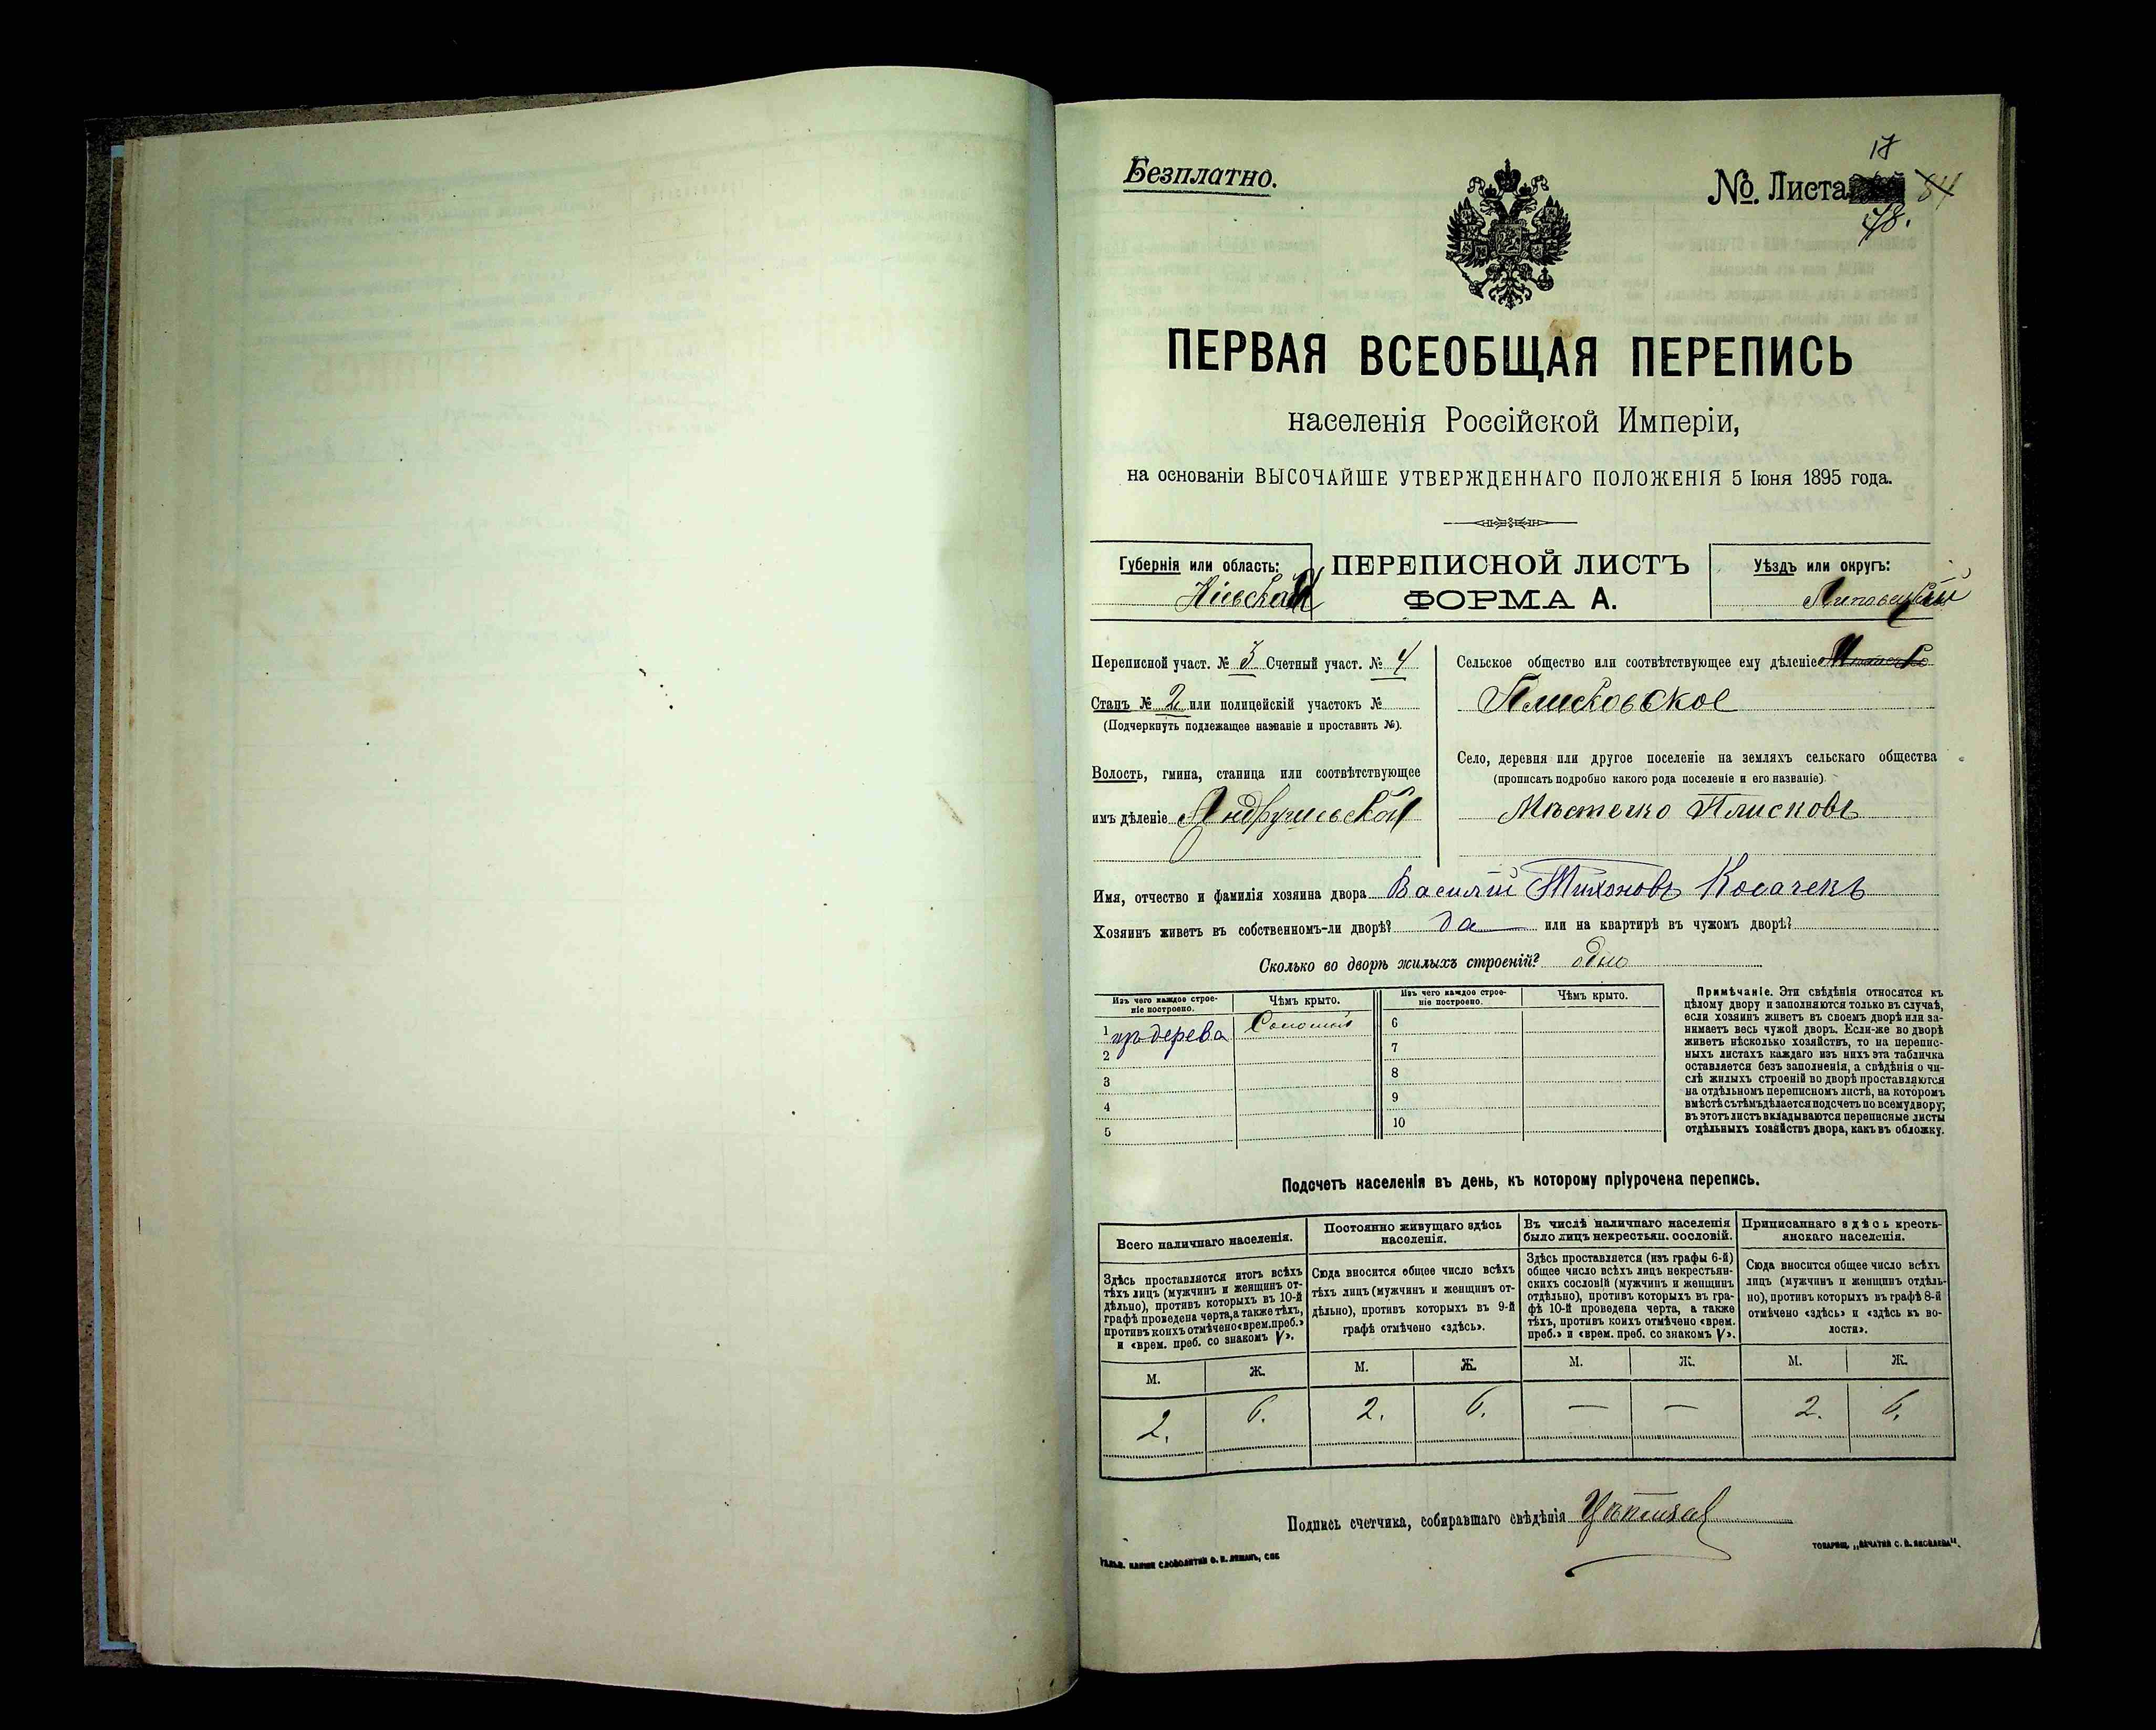 Безплатно.
17
№. Листа 84
48.
ПЕРВАЯ ВСЕОБЩАЯ ПЕРЕПИСЬ
населенія Россійской Имперіи,
на основаніи ВЫСОЧАЙШЕ УТВЕРЖДЕННАГО ПОЛОЖЕНІЯ 5 Іюня 1895 года.
Губернія или область:
Кіевская
ПЕРЕПИСНОЙ ЛИСТЪ
ФОРМА А.
Уѣздъ или округъ:
Липовецкій
Переписной участ. № 3 Счетный участ. № 4
Станъ № 2 или полицейскій участокъ №
(Подчеркнуть подлежащее названіе и проставить №).
Волость, гмина, станица или соотвѣтствующее
имъ дѣленіе Андрушевской
Сельское общество или соотвѣтствующее ему дѣленіе
Плисковское
Село, деревня или другое поселеніе на земляхъ сельскаго общества
(прописать подробно какого рода поселеніе и его названіе)
Мѣстечко Плисковъ
Имя, отчество и фамилія хозяина двора Василій Тихоновъ Косаченъ
Хозяинъ живетъ въ собственномъ-ли дворѣ? да или на квартирѣ въ чужомъ дворѣ?
Сколько во дворѣ жилыхъ строеній? одно
Изъ чего каждое строе-
ніе построено.
Чѣмъ крыто.
Изъ чего каждое строе-
ніе построено.
Чѣмъ крыто.
1 изъ дерева Соломой 6
2 7
3 8
4 9
5 10
Примѣчаніе. Эти свѣдѣнія относятся къ
цѣлому двору и заполняются только въ случаѣ,
если хозяинъ живетъ въ своемъ дворѣ или за-
нимаетъ весь чужой дворъ. Если-же во дворѣ
живетъ нѣсколько хозяйствъ, то на перепис-
ныхъ листахъ каждаго изъ нихъ эта табличка
оставляется безъ заполненія, а свѣдѣнія о чи-
слѣ жилыхъ строеній во дворѣ проставляются
на отдѣльномъ переписномъ листѣ, на которомъ
вмѣстѣ съ тѣмъ дѣлается подсчетъ по всему двору;
въ этотъ листъ вкладываются переписные листы
отдѣльныхъ хозяйствъ двора, какъ въ обложку.
Подсчетъ населенія въ день, къ которому пріурочена перепись.
Всего наличнаго населенія.
Здѣсь проставляется итогъ всѣхъ
тѣхъ лицъ (мужчинъ и женщинъ от-
дѣльно), противъ которыхъ въ 10-й
графѣ проведена черта, а также тѣхъ,
противъ коихъ отмѣчено «врем. преб.»
и «врем. преб. со знакомъ V».
Постоянно живущаго здѣсь
населенія.
Сюда вносится общее число всѣхъ
тѣхъ лицъ (мужчинъ и женщинъ от-
дѣльно), противъ которыхъ въ 9-й
графѣ отмѣчено «здѣсь».
Въ числѣ наличнаго населенія
было лицъ некрестьян. сословій.
Здѣсь проставляется (изъ графы 6-й)
общее число всѣхъ лицъ некрестьян-
скихъ сословій (мужчинъ и женщинъ
отдѣльно), противъ которыхъ въ гра-
фѣ 10-й проведена черта, а также
тѣхъ, противъ коихъ отмѣчено «врем.
преб.» и «врем. преб. со знакомъ V».
Приписаннаго здѣсь кресть-
янскаго населенія.
Сюда вносится общее число всѣхъ
лицъ (мужчинъ и женщинъ отдѣль-
но), противъ которыхъ въ графѣ 8-й
отмѣчено «здѣсь» и «здѣсь въ во-
лости».
М. Ж. М. Ж. М. Ж. М. Ж.
2. 6. 2. 6. — — 2. 6.
Подпись счетчика, собиравшаго свѣдѣнія
СЛОВОЛИТНИ О. И. ЛЕМАНЪ, СПБ
ТОВАРИЩ. „ПЕЧАТНЯ С. П. ЯКОВЛЕВА".